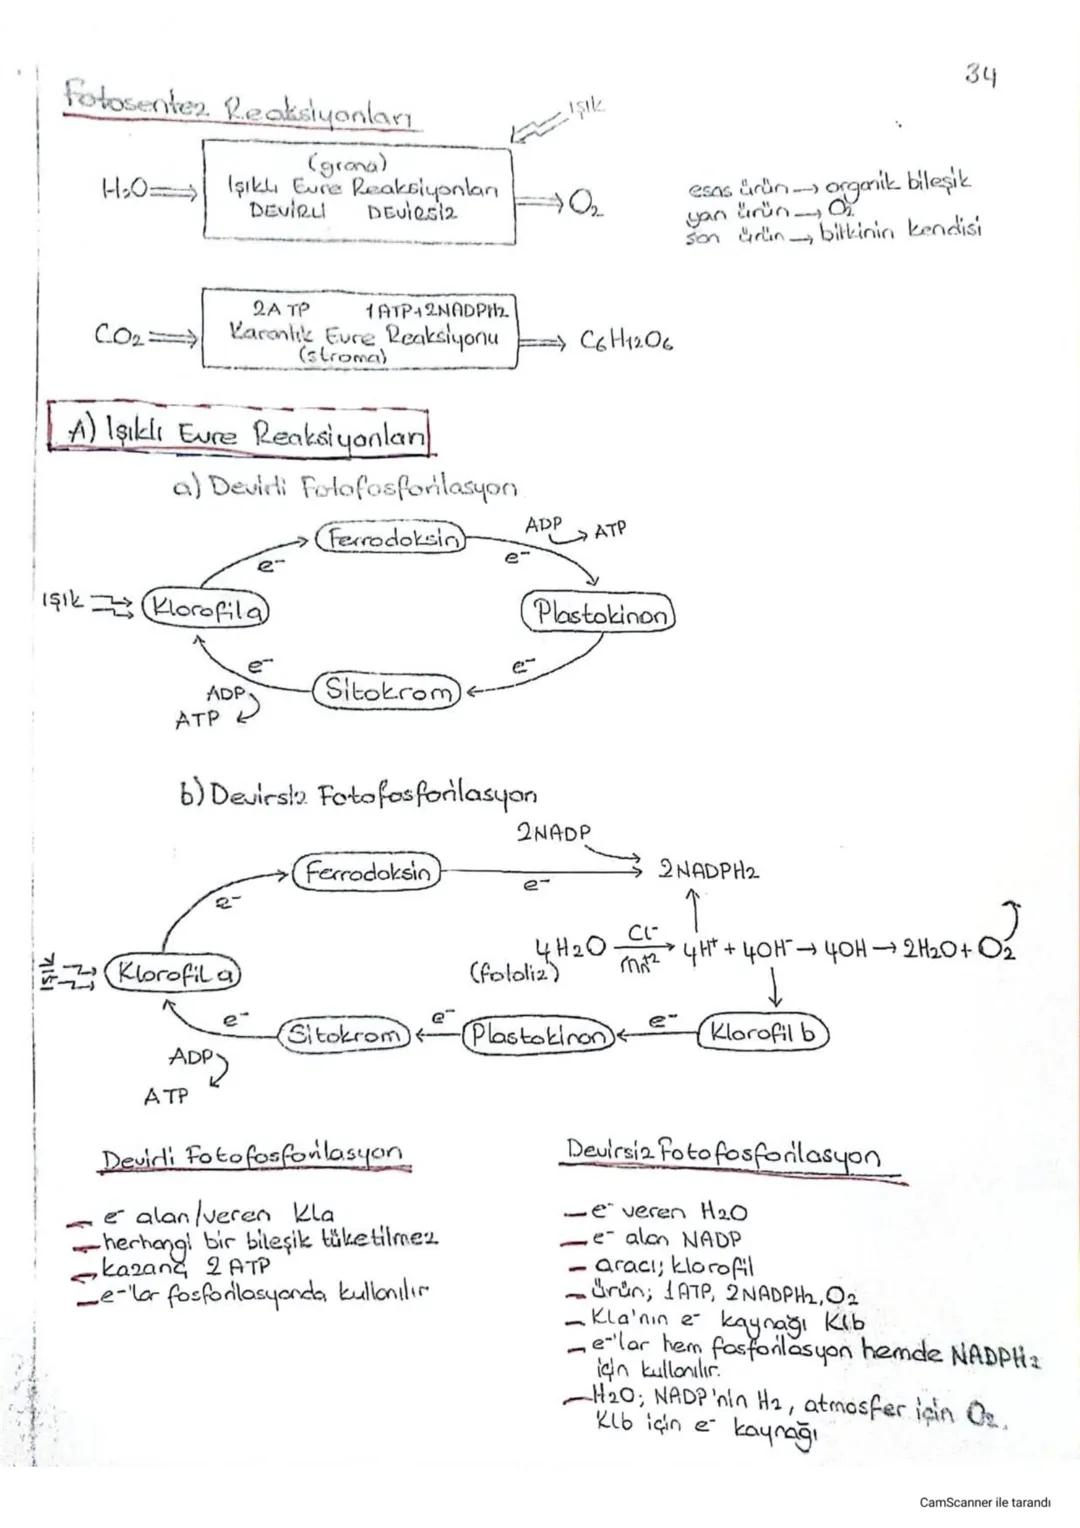 34
Fotosentez Reaksiyonları
Işık
(grana)
H₂O ⇒ Işıklı Evre Reaksiyonları ⇒ O₂
DEVİRLİ DEVİRSİZ
esas ürün → organik bileşik
yan ürün → O₂
son ürün → bitkinin kendisi
2ATP 1ATP+2NADPH₂
CO₂ ⇒ Karanlık Evre Reaksiyonu ⇒ C₆H₁₂O₆
(stroma)
A) Işıklı Evre Reaksiyonları
a) Devirli Fotofosforilasyon
Ferrodoksin
ADP → ATP
e⁻ e⁻
Işık Klorofil a
Plastokinon
e⁻ e⁻
Sitokrom
ADP
ATP
b) Devirsiz Fotofosforilasyon
2NADP
Ferrodoksin → 2NADPH₂
e⁻ e⁻
4H₂O Cl⁻ Mn⁺² → 4H⁺ + 4OH⁻ → 4OH → 2H₂O + O₂
(fotoliz)
Işık Klorofil a
e⁻ Sitokrom ← e⁻ Plastokinon ← e⁻ Klorofil b
ADP
ATP
Devirli Fotofosforilasyon
– e⁻ alan/veren Kla
– herhangi bir bileşik tüketilmez
– kazanç 2 ATP
– e⁻'lar fosforilasyonda kullanılır
Devirsiz Fotofosforilasyon
– e⁻ veren H₂O
– e⁻ alan NADP
– aracı; klorofil
– ürün; 1ATP, 2NADPH₂, O₂
– Kla'nın e⁻ kaynağı Klb
– e⁻'lar hem fosforilasyon hemde NADPH₂
için kullanılır.
– H₂O; NADP'nin H₂, atmosfer için O₂,
Klb için e⁻ kaynağı
CamScanner ile tarandı